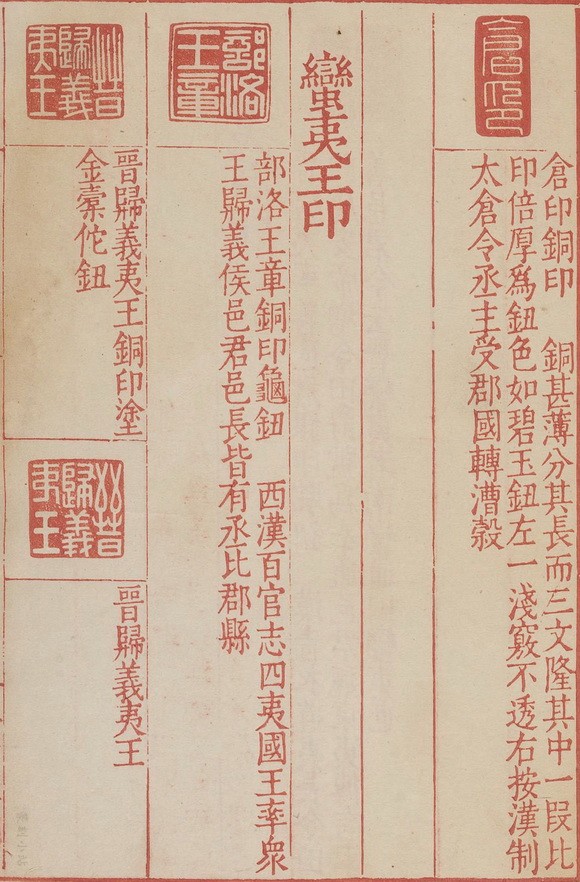 倉印
倉印銅印　銅甚薄分其長而三文隆其中一段比
印倍厚爲鈕色如碧玉鈕左一淺竅不透右按漢制
太倉令丞主受郡國轉漕穀
蠻夷王印
部洛王章
部洛王章銅印龜鈕　西漢百官志四夷國王率衆
王歸義侯邑君邑長皆有丞比郡縣
晉歸義夷王
晉歸義夷王銅印塗
金橐佗鈕
晉歸義夷王
晉歸義夷王